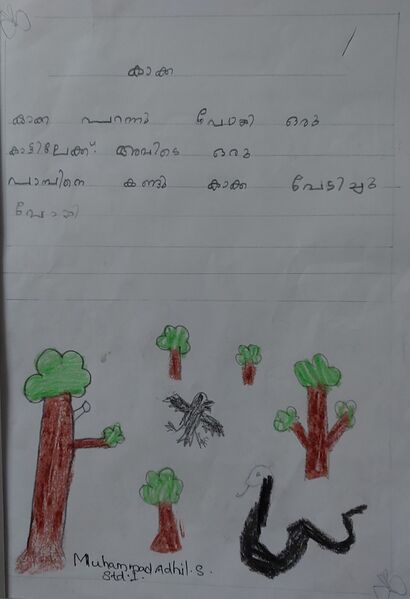 കാക്ക
കാക്ക പറന്നു പോയി ഒരു
കാട്ടിലേക്ക്. അവിടെ ഒരു
പാമ്പിനെ കണ്ടു കാക്ക പേടിച്ചു
പോയി
Muhammad Adhil. S.
Std. I.